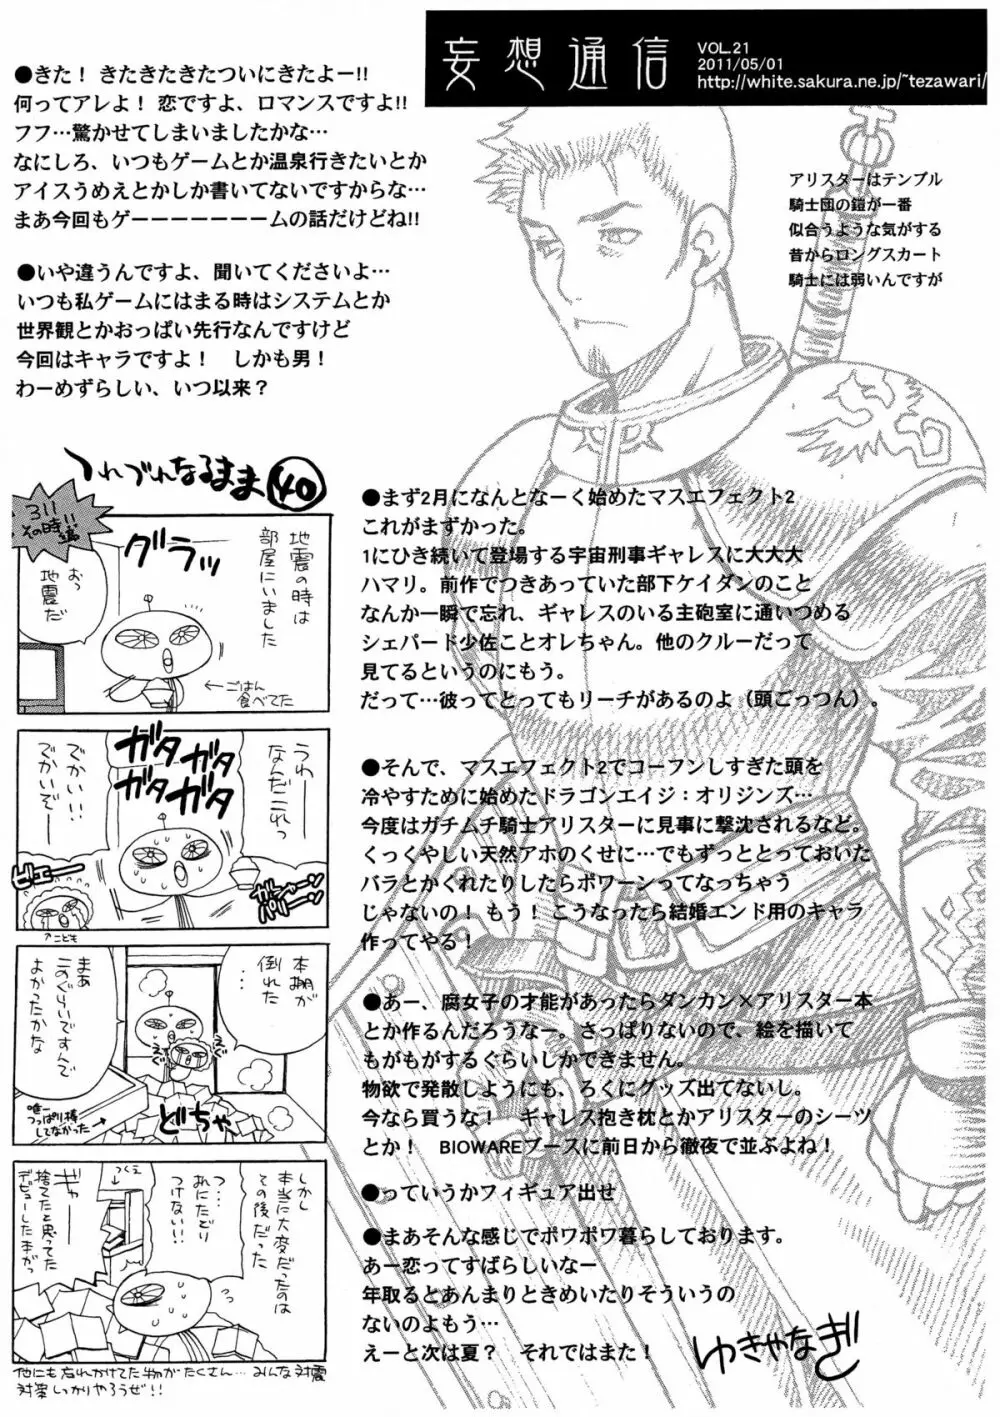 妄想通信
VOL.21
2011/05/01
http://white.sakura.ne.jp/~tezawari/
●きた！ きたきたきたついにきたよー!!
何ってアレよ！ 恋ですよ、ロマンスですよ!!
フフ…驚かせてしまいましたかな…
なにしろ、いつもゲームとか温泉行きたいとか
アイスうめえとかしか書いてないですからな…
まあ今回もゲーーーーーーームの話だけどね!!
●いや違うんですよ、聞いてくださいよ…
いつも私ゲームにはまる時はシステムとか
世界観とかおっぱい先行なんですけど
今回はキャラですよ！　しかも男！
わーめずらしい、いつ以来？
アリスターはテンプル
騎士団の鎧が一番
似合うような気がする
昔からロングスカート
騎士には弱いんですが
つれづれなるまま40
311
その時!!編
地震の時は
部屋にいました
グラッ
おっ
地震だ
←ごはん
食べてた
うわー
なんだこれっ
ガタガタ
ガタガタ
でかい!!
でかいぞー
ピエー
ガシャーン
パリーン
↑こども
本棚が
倒れた…
まあ
このぐらいですんで
よかったかな
どちゃ
唯一
つっぱり棒
してなかった→
しかし
本当に大変だったのは
その後だった
つ…
つくえ
ギャー
捨てたと思ってた
デビューした本がっ
他にも忘れかけてた物がたくさん… みんな対震
対策しっかりやろうぜ!!
●まず2月になんとなーく始めたマスエフェクト2
これがまずかった。
1にひき続いて登場する宇宙刑事ギャレスに大大大
ハマリ。前作でつきあっていた部下ケイダンのこと
なんか一瞬で忘れ、ギャレスのいる主砲室に通いつめる
シェパード少佐ことオレちゃん。他のクルーだって
見てるというのにもう。
だって…彼ってとってもリーチがあるのよ（頭ごっつん）。
●そんで、マスエフェクト2でコーフンしすぎた頭を
冷やすために始めたドラゴンエイジ：オリジンズ…
今度はガチムチ騎士アリスターに見事に撃沈されるなど。
くっくやしい天然アホのくせに…でもずっととっておいた
バラとかくれたりしたらポワーンってなっちゃう
じゃないの！ もう！ こうなったら結婚エンド用のキャラ
作ってやる！
●あー、腐女子の才能があったらダンカン×アリスター本
とか作るんだろうなー。さっぱりないので、絵を描いて
もがもがするぐらいしかできません。
物欲で発散しようにも、ろくにグッズ出てないし。
今なら買うな！　ギャレス抱き枕とかアリスターのシーツ
とか！　BIOWAREブースに前日から徹夜で並ぶよね！
●っていうかフィギュア出せ
●まあそんな感じでポワポワ暮らしております。
あー恋ってすばらしいなー
年取るとあんまりときめいたりそういうの
ないのよもう…
えーと次は夏？　それではまた！
ゆきやなぎ